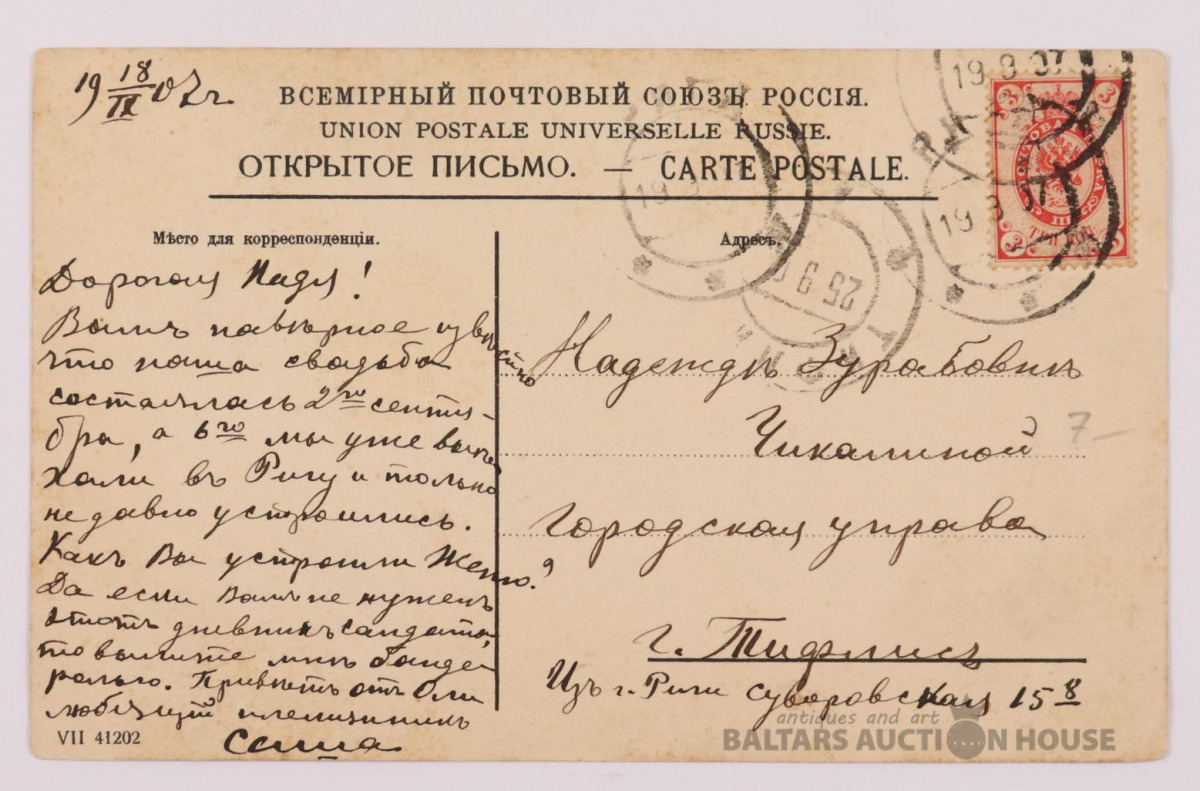 19 18/IX 07 г.
ВСЕМІРНЫЙ ПОЧТОВЫЙ СОЮЗЪ РОССІЯ.
UNION POSTALE UNIVERSELLE RUSSIE.
ОТКРЫТОЕ ПИСЬМО. — CARTE POSTALE.
Мѣсто для корреспонденціи.
Дорогая Надя!
Вамъ навѣрное извѣстно
что наша свадьба
состоялась 2го сентя-
бра, а 6го мы уже выѣ
хали въ Ригу и только
недавно устроились.
Какъ Вы устроили Женю?
Да если Вамъ не нуженъ
этотъ дневникъ солдата,
то вышлите мнѣ банде
ролью. Привѣтъ отъ Оли
любящій племянникъ
Саша
VII 41202
Адресъ.
Надеждѣ Зурабовнѣ
Чикалиной
Городская управа
г. Тифлисъ
Изъ г. Риги Суворовская 15 8
7-
19 9 07
19 9 07
19 9
25 9 0
ТРИ КОП
3
3
3
3
antiques and art
BALTARS AUCTION HOUSE